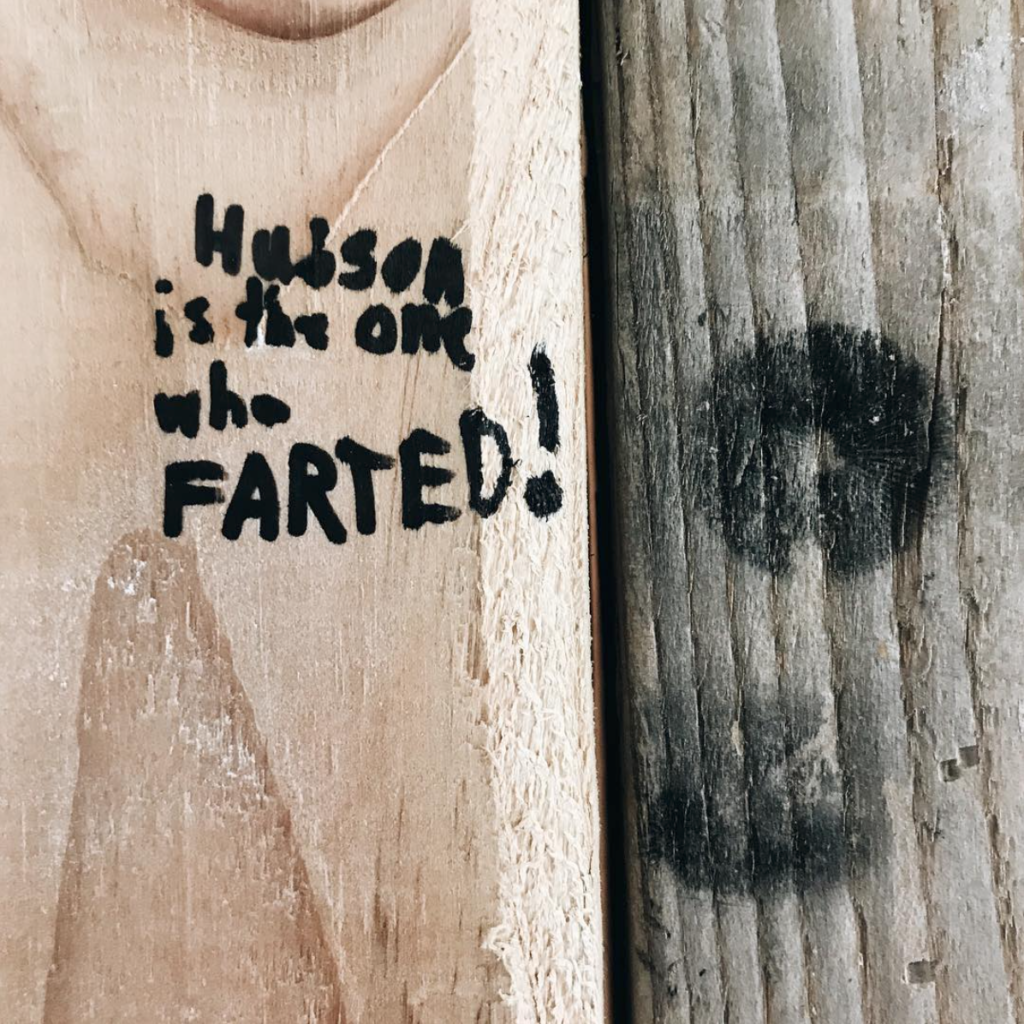 Hudson
is the one
who
FARTED!